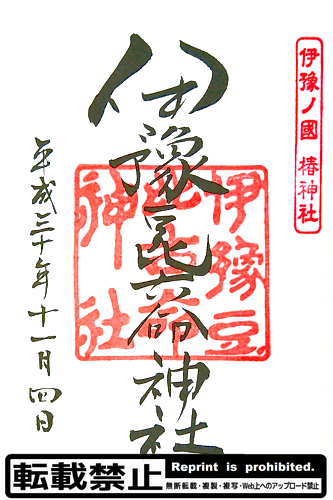 伊豫ノ國 椿神社
伊豫豆比古命神社
伊豫豆
比古命
神社
平成三十年十一月四日
転載禁止
Reprint is prohibited.
無断転載・複製・複写・Web上へのアップロード禁止